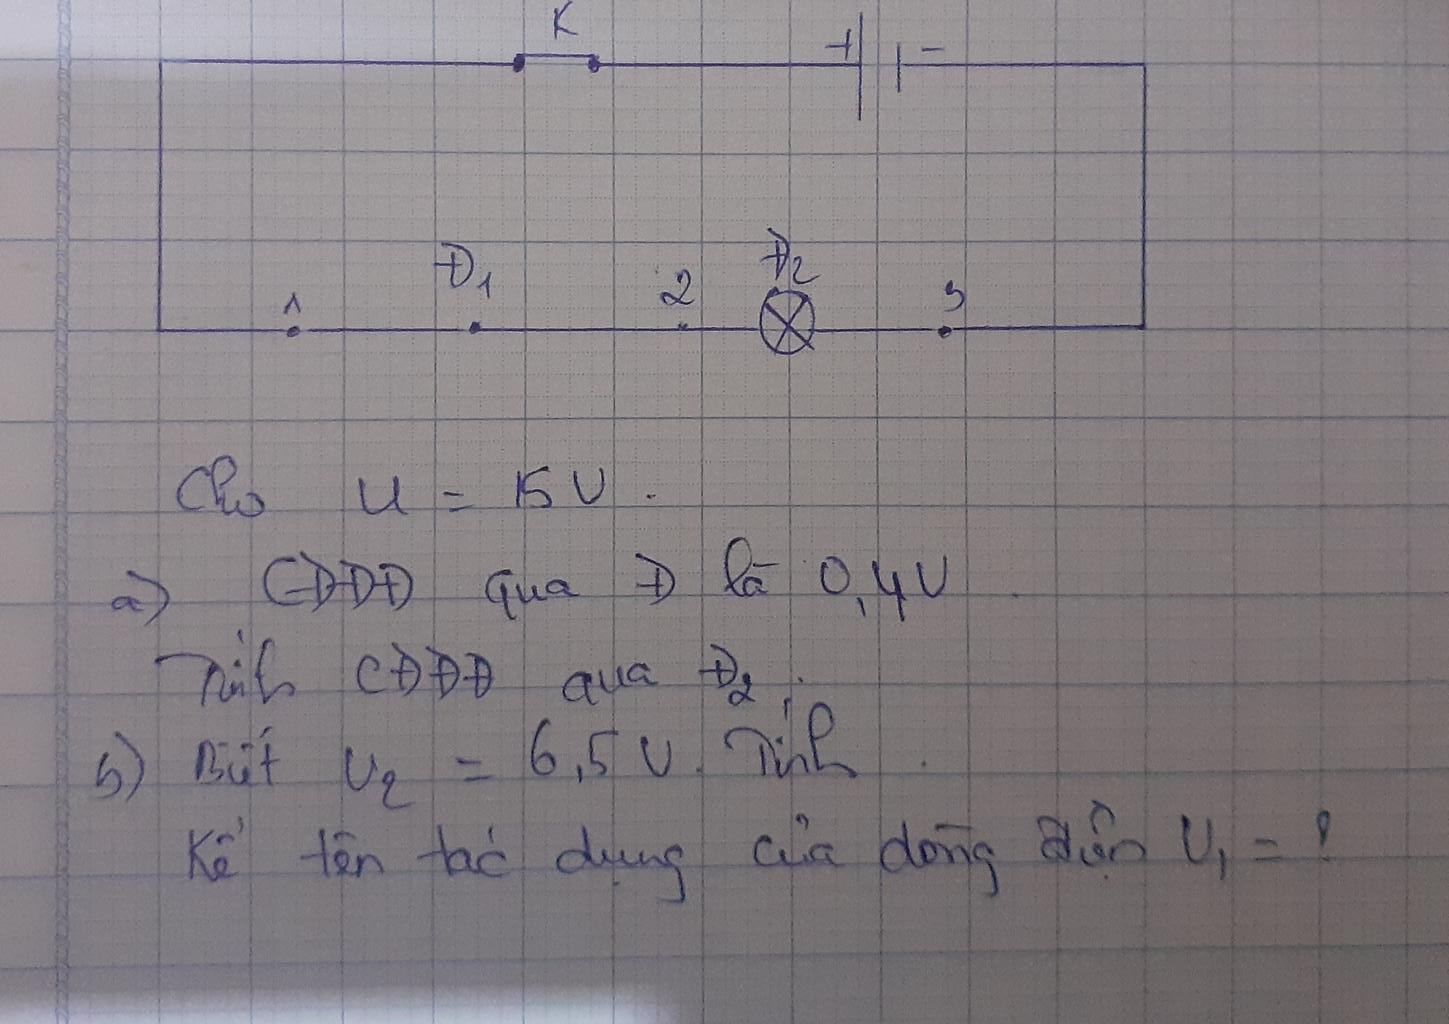 K
+ -
Đ1 Đ2
1 2 3
Cho U = 15 V.
a) CĐDĐ qua Đ là 0,4V
Tính CĐDĐ qua Đ2.
b) Biết U2 = 6,5 V. Tính.
Kể tên tác dụng của dòng điện U1 = ?